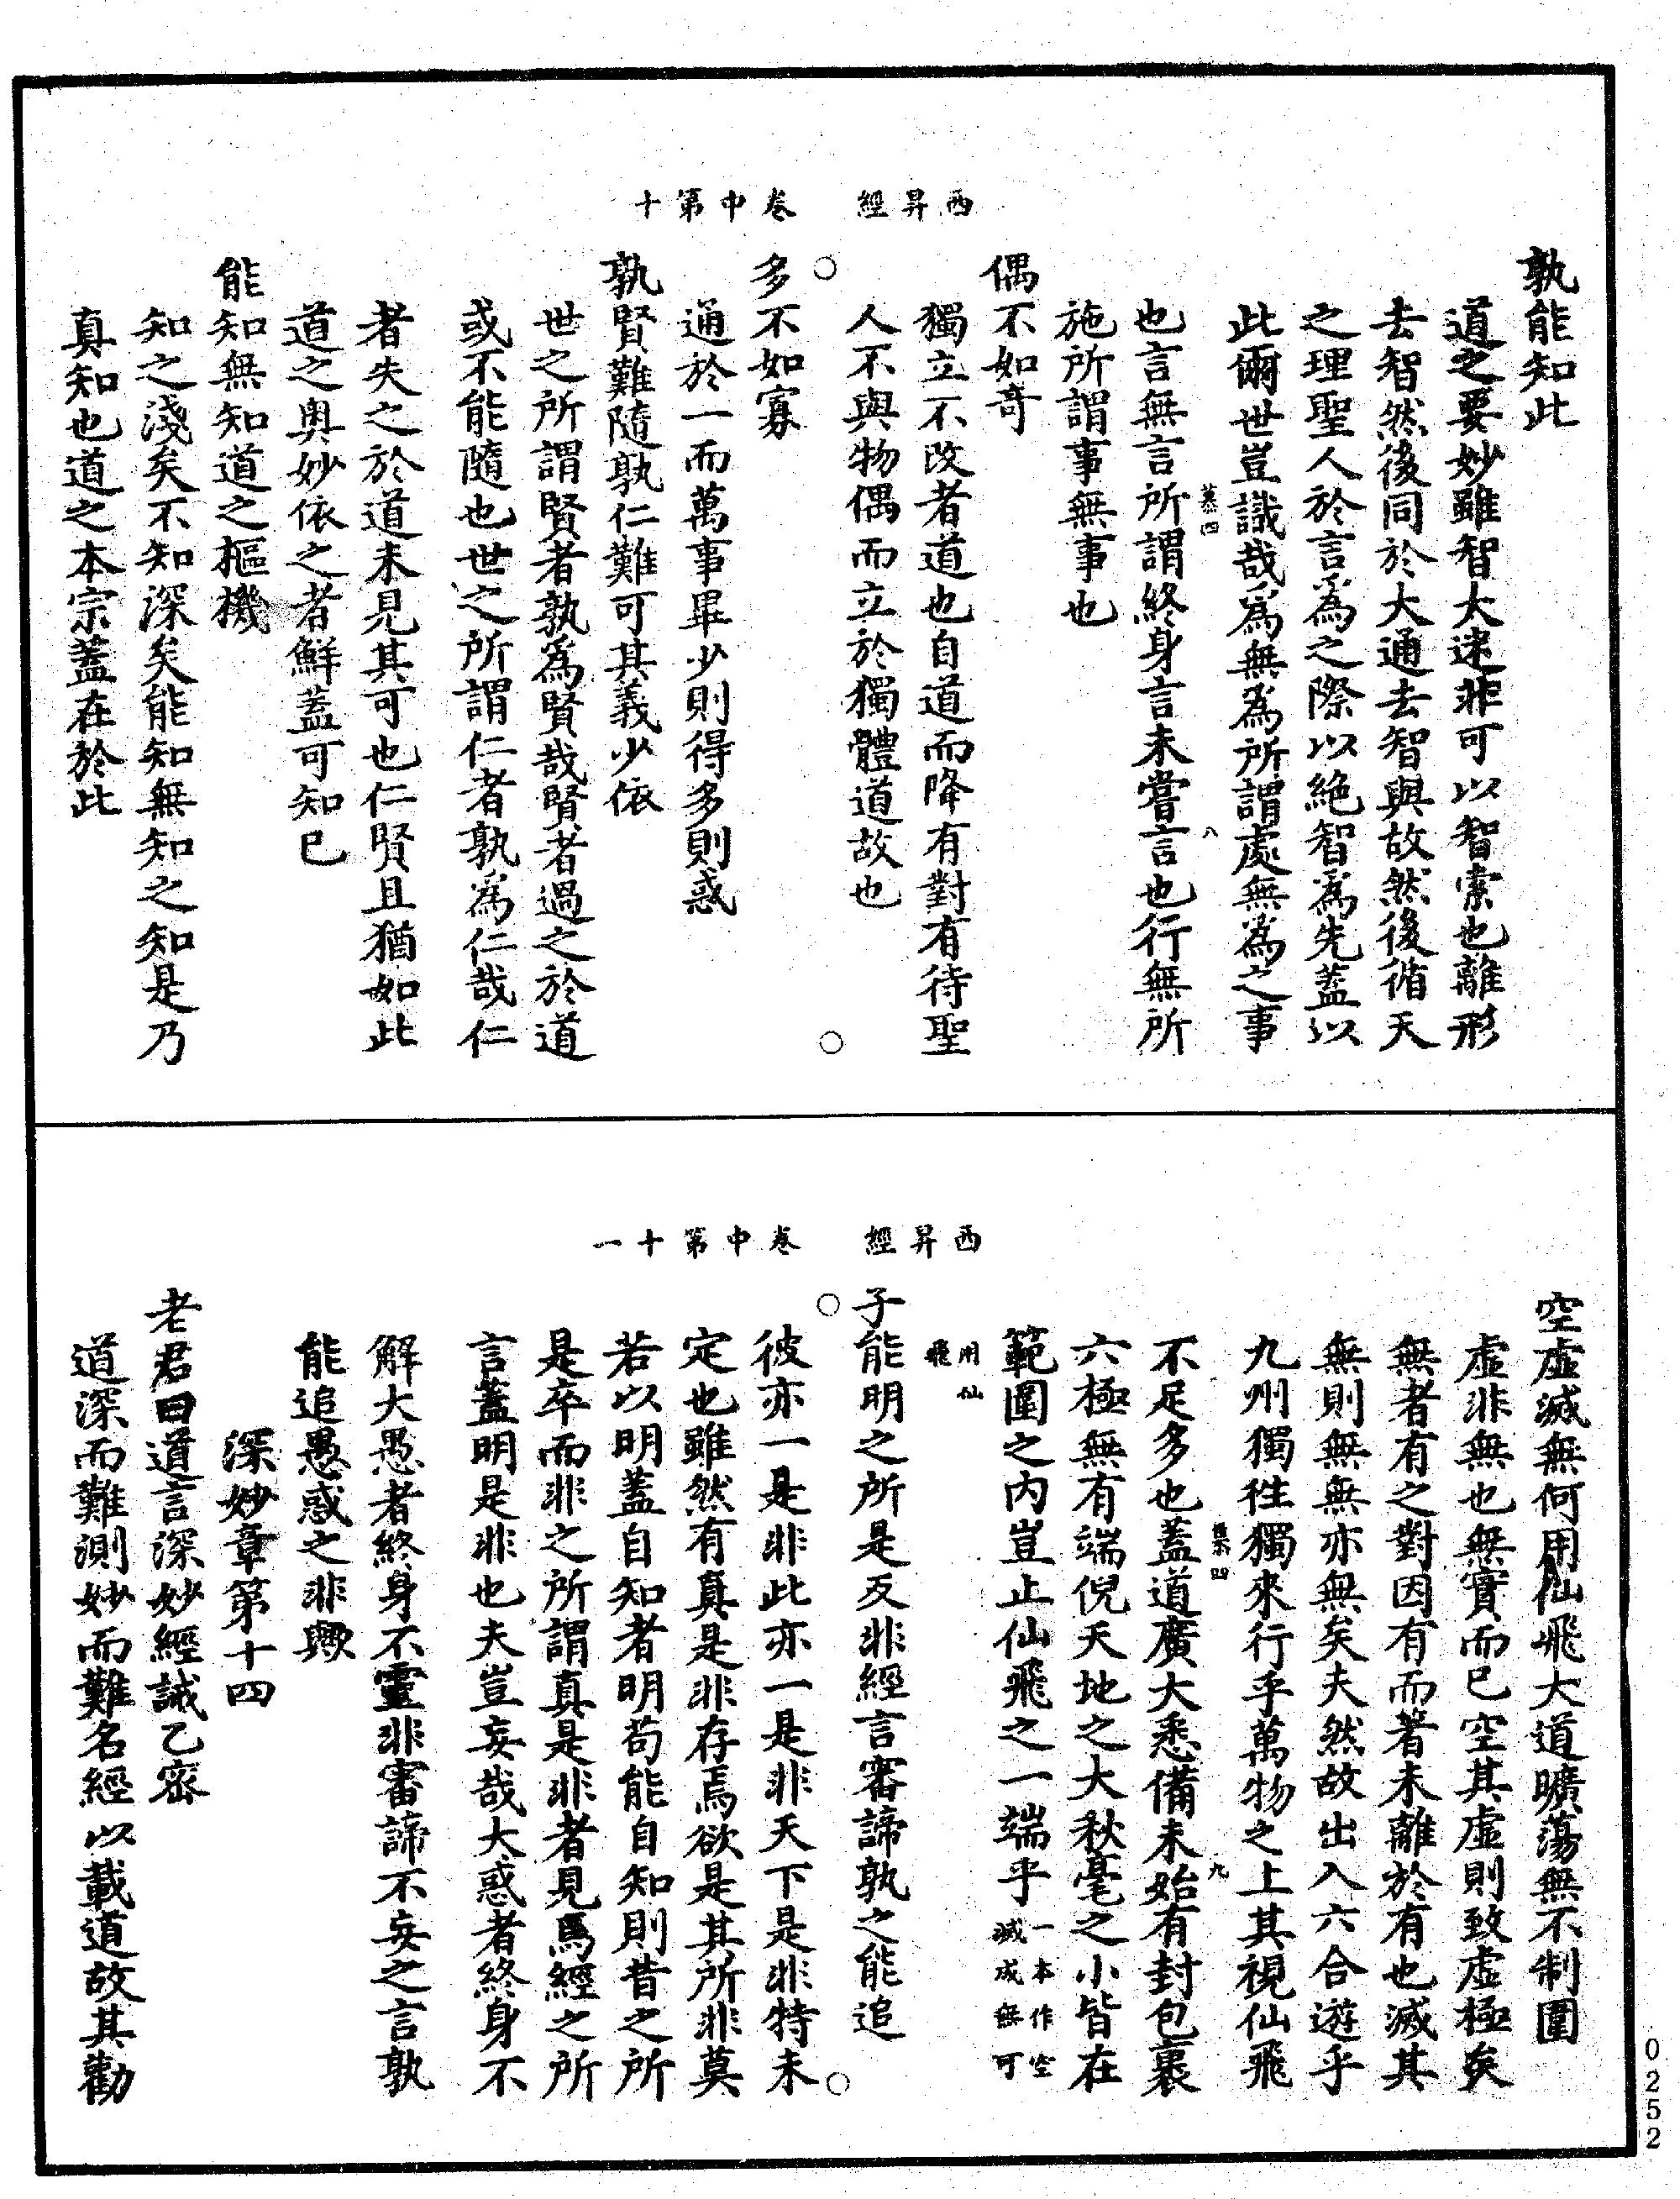 西昇經　卷中第十
孰能知此
道之要妙雖智大迷非可以智索也離形
去智然後同於大通去智與故然後循天
之理聖人於言為之際以絶智為先蓋以
此爾世豈識哉為無為所謂處無為之事
慕四　八
也言無言所謂終身言未嘗言也行無所
施所謂事無事也
偶不如奇
獨立不改者道也自道而降有對有待聖
人不與物偶而立於獨體道故也
○　○
多不如寡
通於一而萬事畢少則得多則惑
孰賢難隨孰仁難可其義少依
世之所謂賢者孰為賢哉賢者過之於道
或不能隨也世之所謂仁者孰為仁哉仁
者失之於道未見其可也仁賢且猶如此
道之奥妙依之者鮮蓋可知已
能知無知道之樞機
知之淺矣不知深矣能知無知之知是乃
真知也道之本宗蓋在於此
西昇經　卷中第十一
空虛滅無何用仙飛大道曠蕩無不制圍
虛非無也無實而已空其虛則致虛極矣
無者有之對因有而著未離於有也滅其
無則無無亦無矣夫然故出入六合遊乎
九州獨往獨來行乎萬物之上其視仙飛
慕四　九
不足多也蓋道廣大悉備未始有封包裹
六極無有端倪天地之大秋毫之小皆在
範圍之内豈止仙飛之一端乎一本作空滅成無可
用仙飛
子能明之所是反非經言審諦孰之能追
○　○
彼亦一是非此亦一是非天下是非特未
定也雖然有真是非存焉欲是其所非莫
若以明蓋自知者明苟能自知則昔之所
是卒而非之所謂真是非者見焉經之所
言蓋明是非也夫豈妄哉大惑者終身不
解大愚者終身不靈非審諦不妄之言孰
能追愚惑之非歟
深妙章第十四
老君曰道言深妙經誡乙密
道深而難測妙而難名經以載道故其勸
0252